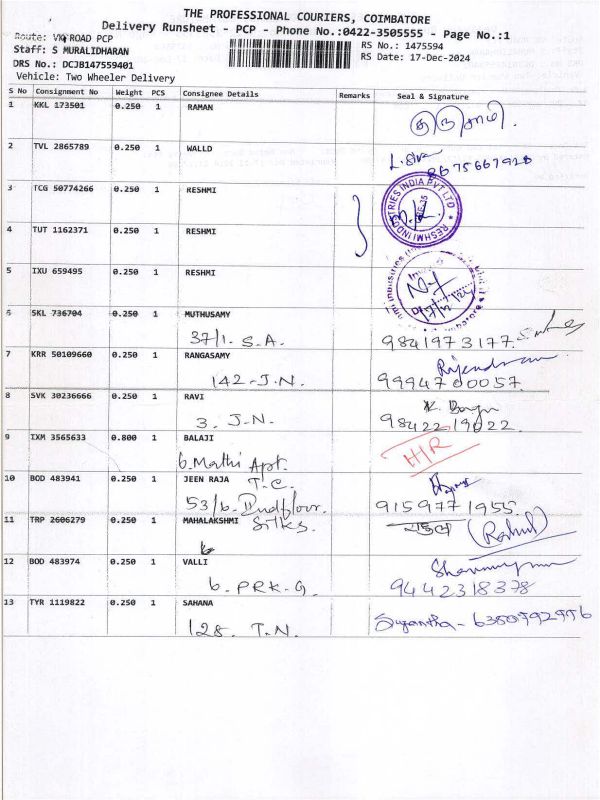 THE PROFESSIONAL COURIERS, COIMBATORE
Delivery Runsheet - PCP - Phone No.:0422-3505555 - Page No.:1
Route: VK ROAD PCP
RS No.: 1475594
Staff: S MURALIDHARAN
RS Date: 17-Dec-2024
DRS No.: DCJB147559401
Vehicle: Two Wheeler Delivery
S No Consignment No Weight PCS Consignee Details Remarks Seal & Signature
1 KKL 173501 0.250 1 RAMAN
2 TVL 2865789 0.250 1 WALLD
8675667928
3 TCG 50774266 0.250 1 RESHMI
RESHMI INDUSTRIES INDIA PVT LTD
4 TUT 1162371 0.250 1 RESHMI
5 IXU 659495 0.250 1 RESHMI
17/12/24
6 SKL 736704 0.250 1 MUTHUSAMY
37/1. S.A. 9841973177.
7 KRR 50109660 0.250 1 RANGASAMY Rajendran
142-J.N. 9994700057.
8 SVK 30236666 0.250 1 RAVI
3. J.N. 98422 19022
9 IXM 3565633 0.800 1 BALAJI H/R
6. Mathi Apt.
10 BOD 483941 0.250 1 JEEN RAJA T.C.
53/6. IIndfloor. 9159771955
11 TRP 2606279 0.250 1 MAHALAKSHMI Silks. (Rahul)
6
12 BOD 483974 0.250 1 VALLI
6. PRK-G. 9442318378
13 TYR 1119822 0.250 1 SAHANA
128. T.N.